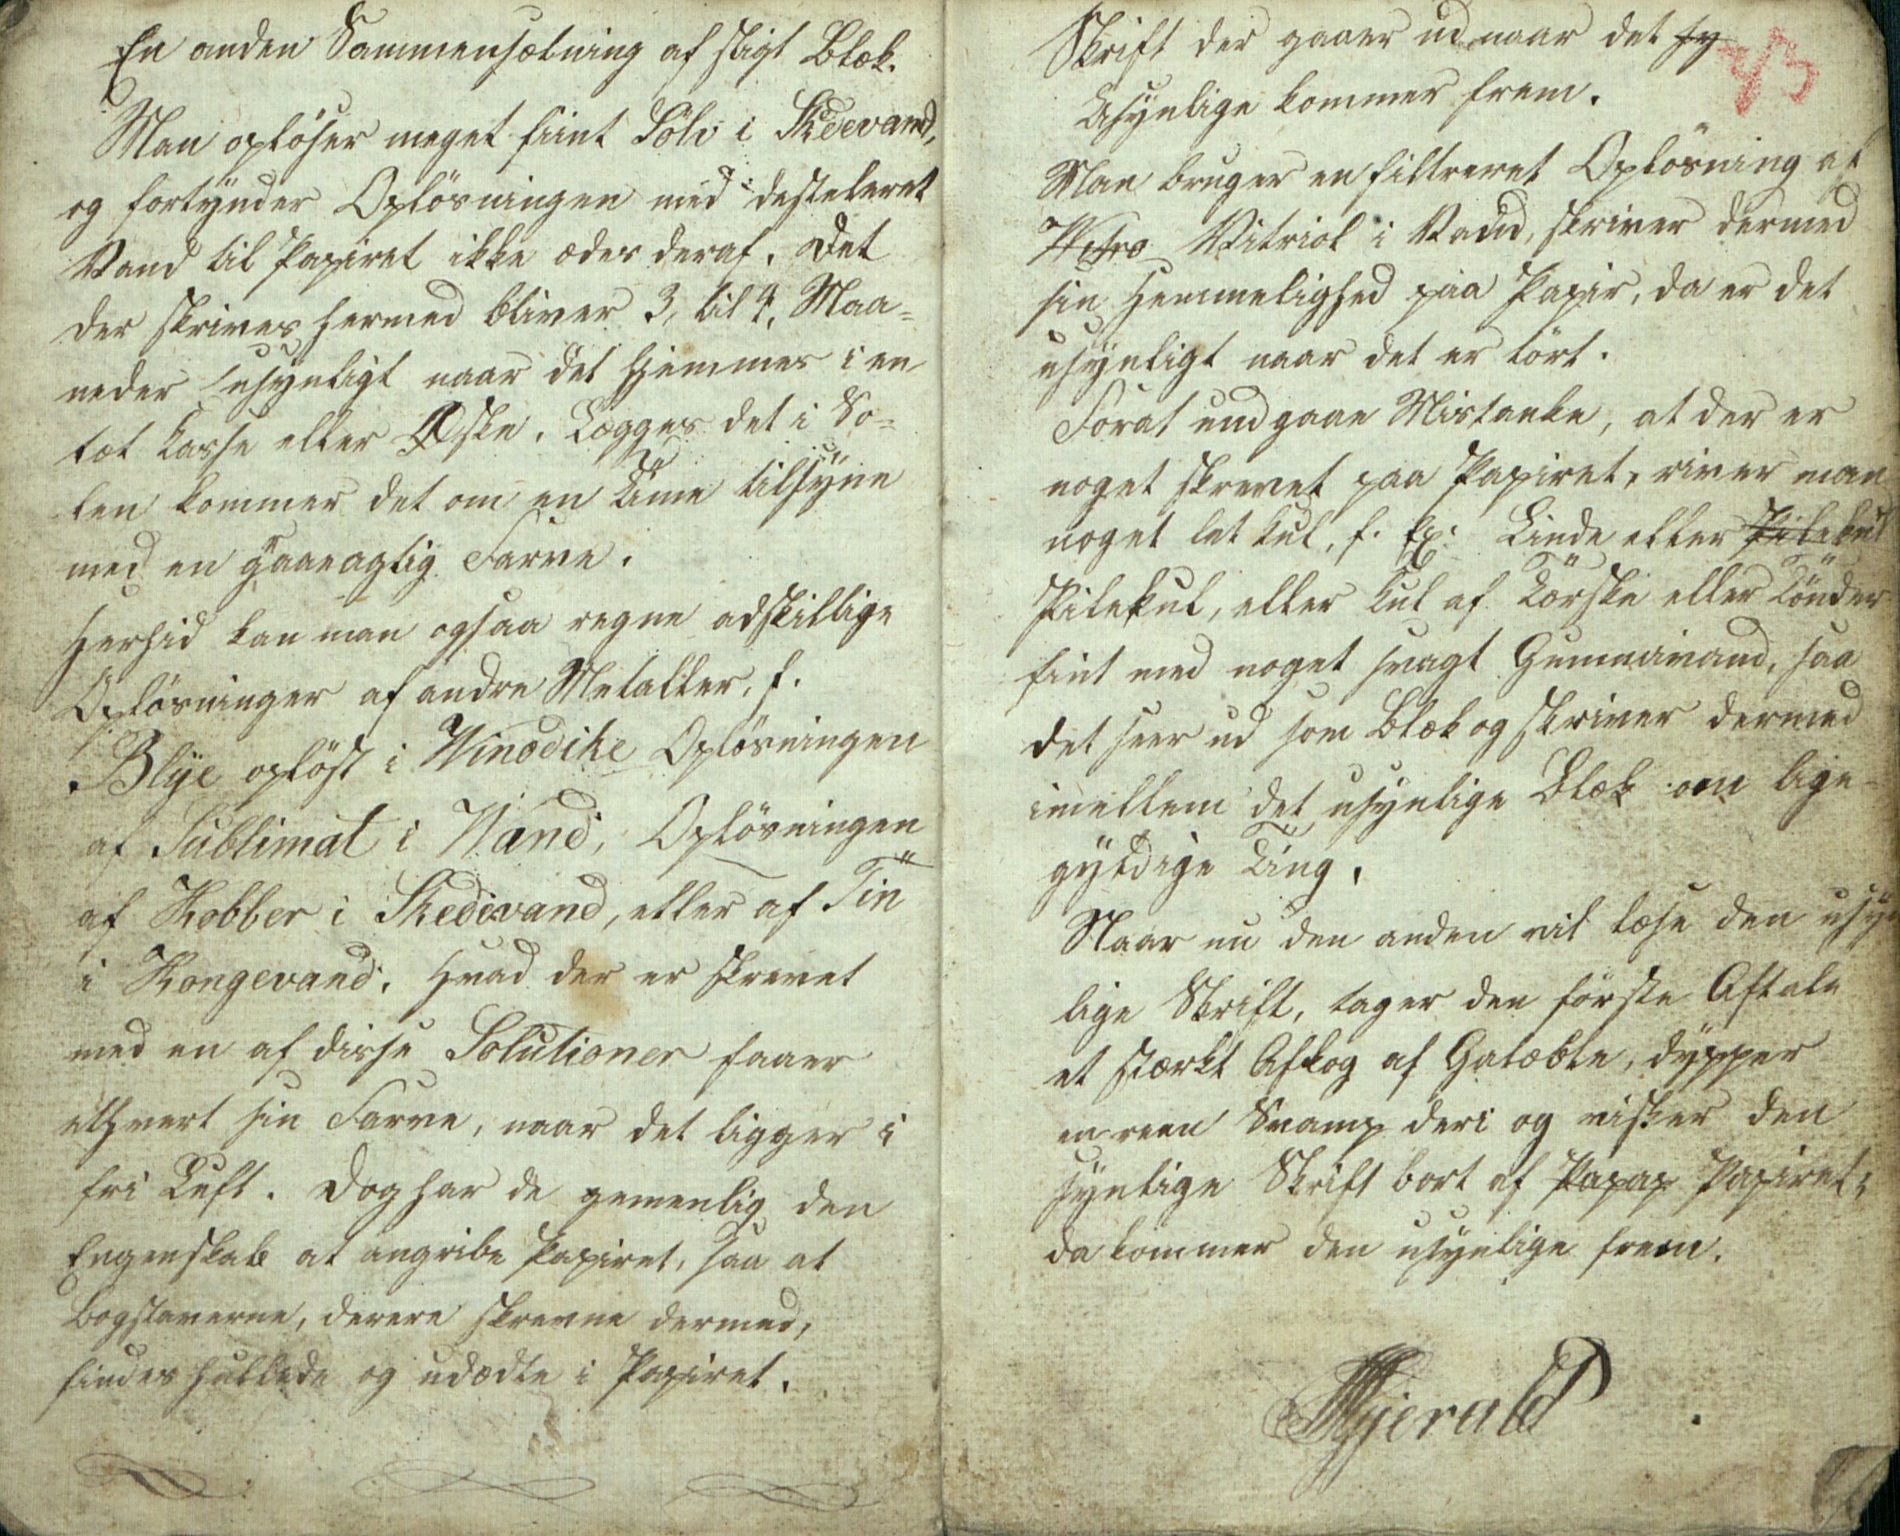 En anden Sammensætning af sligt Blæk.
Man opløser meget fiint Sölv i Skedevand,
og fortÿnder Oplösningen med desteleret
Vand til Papiret ikke ædes deraf. Det
der skrives hermed bliver 3, til 4, Maa=
neder usynligt naar det gjemmes i en
tæt Kasse eller Æske. Lægges det i So=
len kommer det om en Time tilsÿne
med en graaeagtig Farve.
Herhid kan man ogsaa regne adskillige
Oplösninger af andre Metaller, f.
Blÿe oplöst i Vinædike Oplösningen
af Sublimat i Vand, Oplösningen
af Kobber i Skedevand, eller af Tin
i Kongevand. Hvad der er skrevet
med en af disse Solutioner faaer
ethvert sin Farve, naar det ligger i
fri Luft. Dog har de gemenlig den
Engenskab at angribe Papiret, saa at
Bogstaverne, derere skrevne dermed,
findes hullede og udædte i Papiret.
Skrift der gaaer ud naar det sy
Usynlige kommer frem.
Man bruger en filtreret Oplösning af
Vitriol i Vand, skriver dermed
sin Hemmelighed paa Papir, da er det
usÿnligt naar det er tört.
Forat undgaae Mistanke, at der er
noget skrevet paa Papiret, river man
noget let Kul, f. Ex: Linde eller Pilekul
Pilekul, eller Kul af Törske eller Tönder
fint med noget svagt Gummivand, saa
det seer ud som Blæk og skriver dermed
imellem det usynlige Blæk om lige=
gÿldige Ting.
Naar nu den anden vil læse den usÿn
lige Skrift, tager den förste Aftale
et stærkt Afkog af Galæble, dÿpper
en reen Svamp deri og visker den
synlige Skrift bort af Papap Papiret;
da kommer den usynlige frem.
Hjerald